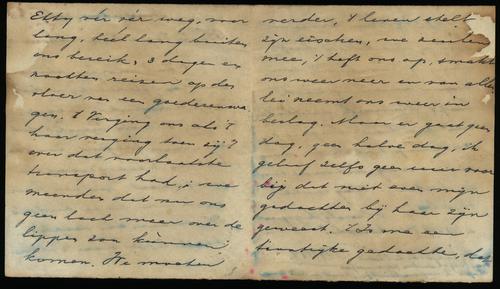 Etty vér vér weg, voor
lang, héél lang buiten
ons bereik, 3 dagen en
nachten reizen op den
vloer van een goederenwa-
gen. 't Verging ons als 't
haar verging toen zij 't
over dat voorlaatste
transport had, we
meenden dat nu ons
geen lach meer over de
lippen zou kunnen
komen. We moeten
verder, 't leven stelt
zijn eischen, we
mee, 't heft ons op, smakt
ons weer neer en van aller
lei neemt ons weer in
beslag. Maar er gaat geen
dag, geen halve dag, ik
geloof zelfs geen uur voor
bij dat niet even mijn
gedachten bij haar zijn
geweest. 't Is me een
gedachte, dat